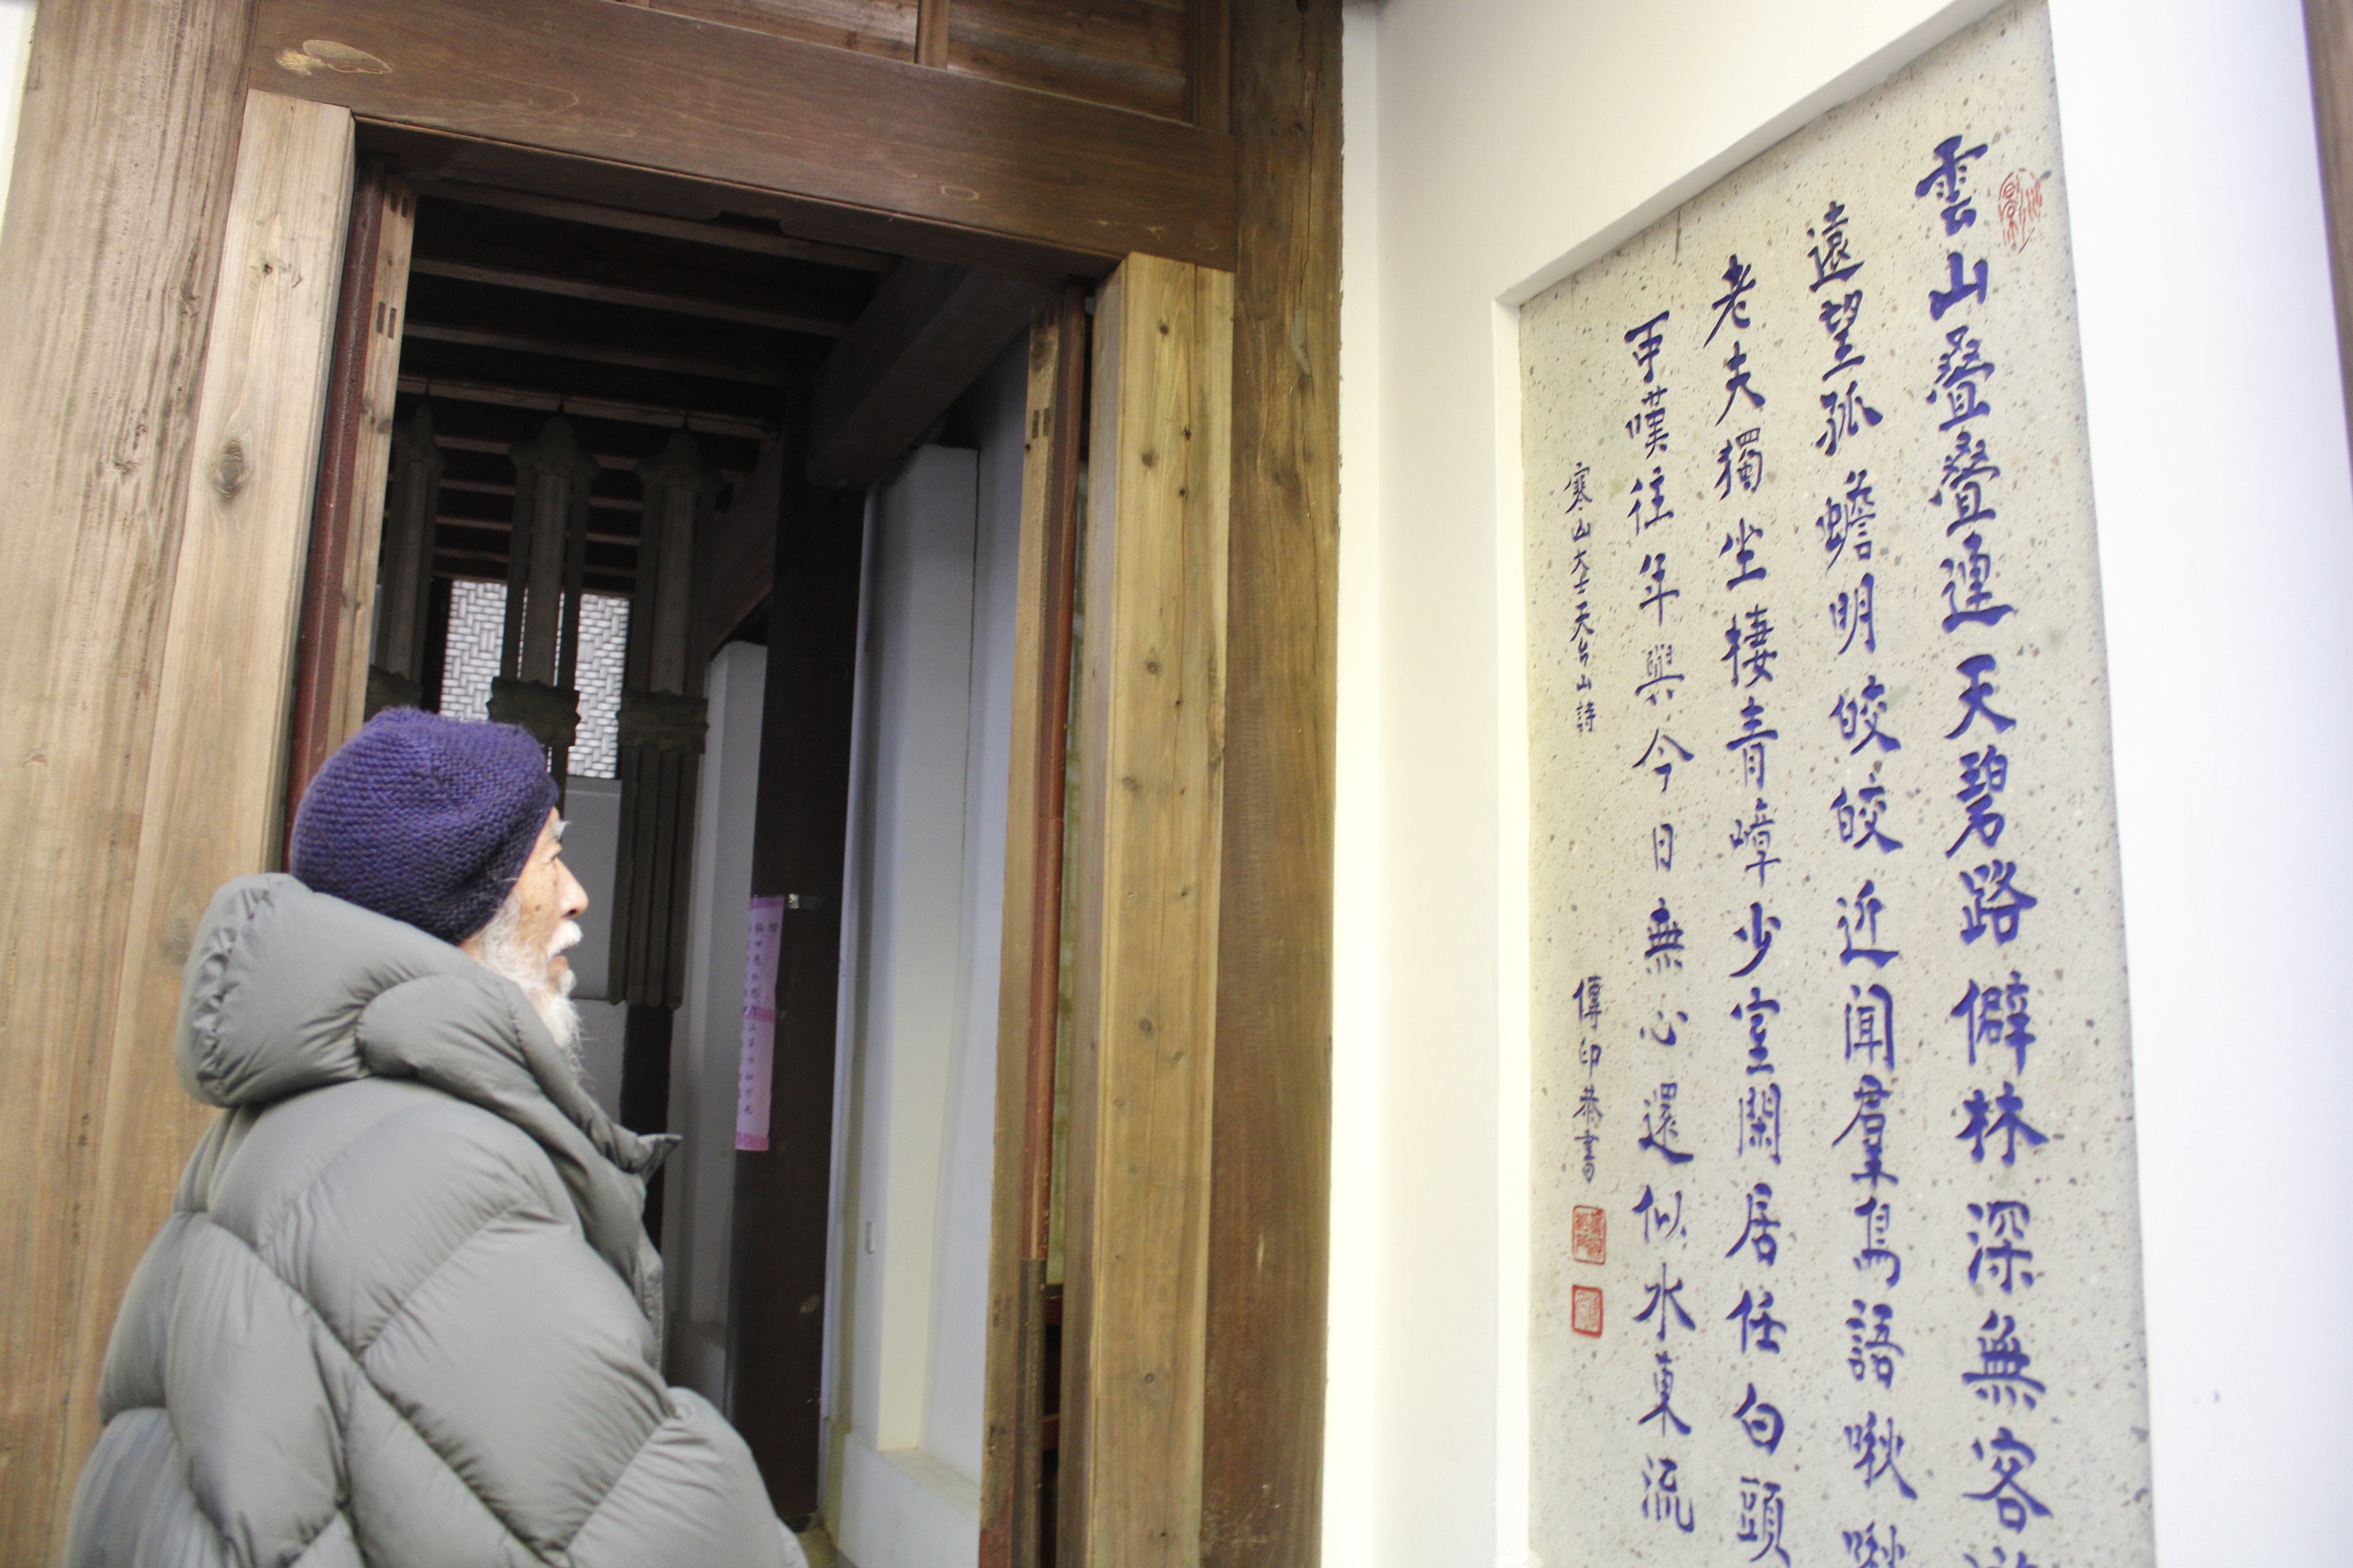 雲山疊疊連天碧路僻林深無客
遠望孤蟾明皎皎近聞羣鳥語啾啾
老夫獨坐棲青嶂少室閒居任白頭
可嘆往年與今日無心還似水東流
寒山大士天台山詩
傳印恭書